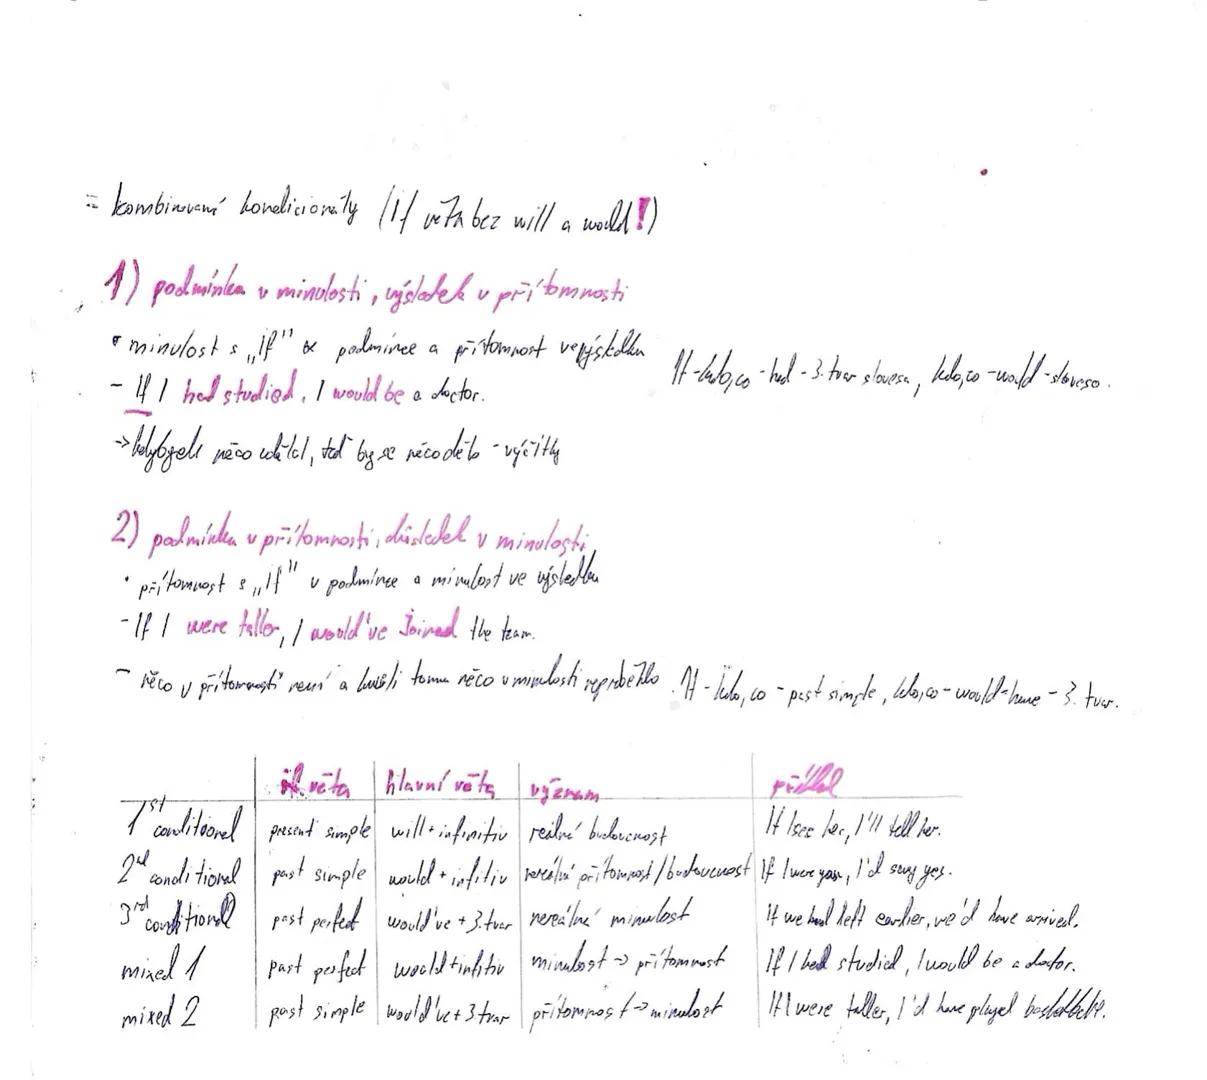 = kombinované kondicionály (If věta bez will a would!)
1) podmínka v minulosti, výsledek v přítomnosti
• minulost s „if" v podmínce a přítomnost ve výsledku
If - kdo, co - had - 3. tvar slovesa, kdo, co - would - sloveso.
- If I had studied, I would be a doctor.
-> kdybych něco udělal, teď by se něco dělo - výčitky
2) podmínka v přítomnosti, důsledek v minulosti
• přítomnost s „if" v podmínce a minulost ve výsledku
- If I were taller, I would've joined the team.
- něco v přítomnosti není a kvůli tomu něco v minulosti neproběhlo. If - kdo, co - past simple, kdo, co - would - have - 3. tvar.
if věta hlavní věta význam příklad
1st conditional present simple will + infinitiv reálná budoucnost If I see her, I'll tell her.
2nd conditional past simple would + infitiv nereálná přítomnost/budoucnost If I were you, I'd say yes.
3rd conditional past perfect would've + 3. tvar nereálná minulost If we had left earlier, we'd have arrived.
mixed 1 past perfect would + infitiv minulost -> přítomnost If I had studied, I would be a doctor.
mixed 2 past simple would've + 3 tvar přítomnost -> minulost If I were taller, I'd have played